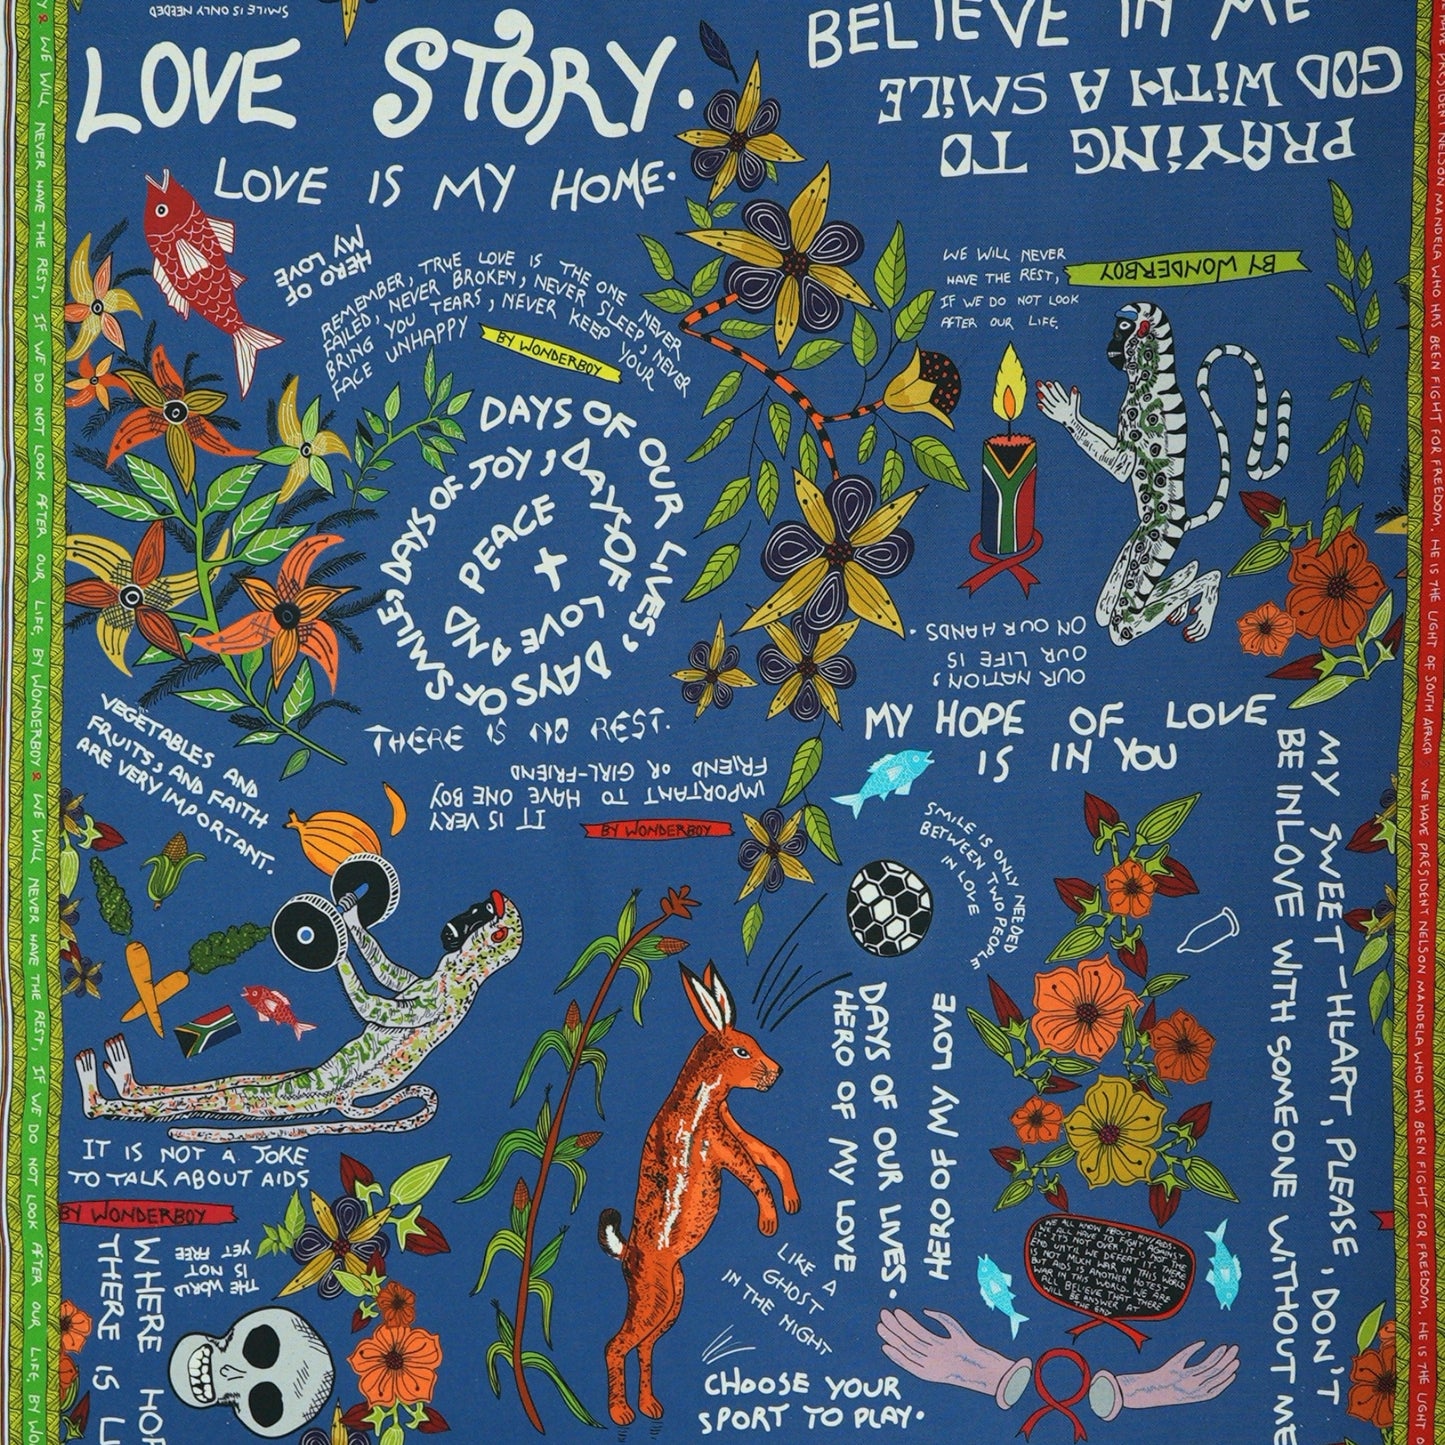 SMILE IS ONLY NEEDED
LOVE STORY.
LOVE IS MY HOME.
BELIEVE IN ME
PRAYING TO
GOD WITH A SMILE
HERO OF
MY LOVE
REMEMBER, TRUE LOVE IS THE ONE NEVER
FAILED, NEVER BROKEN, NEVER SLEEP, NEVER
BRING YOU TEARS, NEVER KEEP YOUR
FACE UNHAPPY
BY WONDERBOY
WE WILL NEVER
HAVE THE REST,
IF WE DO NOT LOOK
AFTER OUR LIFE.
BY WONDERBOY
DAYS OF OUR LIVES, DAYS OF SMILE, DAYS OF JOY, DAYS OF LOVE AND PEACE +
THERE IS NO REST.
OUR NATION,
OUR LIFE IS
ON OUR HANDS.
MY HOPE OF LOVE
IS IN YOU
VEGETABLES AND
FRUITS, AND FAITH
ARE VERY IMPORTANT.
IT IS VERY
IMPORTANT TO HAVE ONE BOY
FRIEND OR GIRL-FRIEND
BY WONDERBOY
SMILE IS ONLY NEEDED
BETWEEN TWO PEOPLE
IN LOVE
MY SWEET-HEART, PLEASE, DON'T
BE INLOVE WITH SOMEONE WITHOUT ME
DAYS OF OUR LIVES.
HERO OF MY LOVE
HERO OF MY LOVE
IT IS NOT A JOKE
TO TALK ABOUT AIDS
BY WONDERBOY
THE WORLD
IS NOT
YET FREE
WHERE HOP
THERE IS L
LIKE A
GHOST
IN THE NIGHT
CHOOSE YOUR
SPORT TO PLAY.
WE ALL KNOW ABOUT HIV/AIDS.
WE ALL HAVE TO FIGHT AGAINST
IT. IT'S NOT OVER, IT IS NOT THE
END UNTIL WE DEFEAT IT. THERE
IS NOT MUCH WAR IN THIS WORLD
BUT AIDS IS ANOTHER HOTEST
WAR IN THIS WORLD. WE ARE
ALL BELIEVE THAT THERE
WILL BE ANSWER AT
THE END.
WE WILL NEVER HAVE THE REST, IF WE DO NOT LOOK AFTER OUR LIFE, BY WONDERBOY WE WILL NEVER HAVE THE REST, IF WE DO NOT LOOK AFTER OUR LIFE, BY WO
HAVE PRESIDENT NELSON MANDELA WHO HAS BEEN FIGHT FOR FREEDOM. HE IS THE LIGHT OF SOUTH AFRICA WE HAVE PRESIDENT NELSON MANDELA WHO HAS BEEN FIGHT FOR FREEDOM. HE IS THE LIGHT O